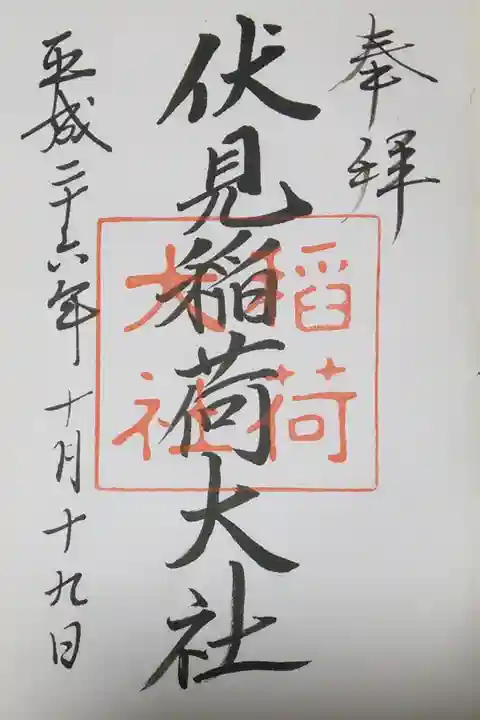 奉拝
伏見稲荷大社
稻荷
大社
平成二十六年十月十九日